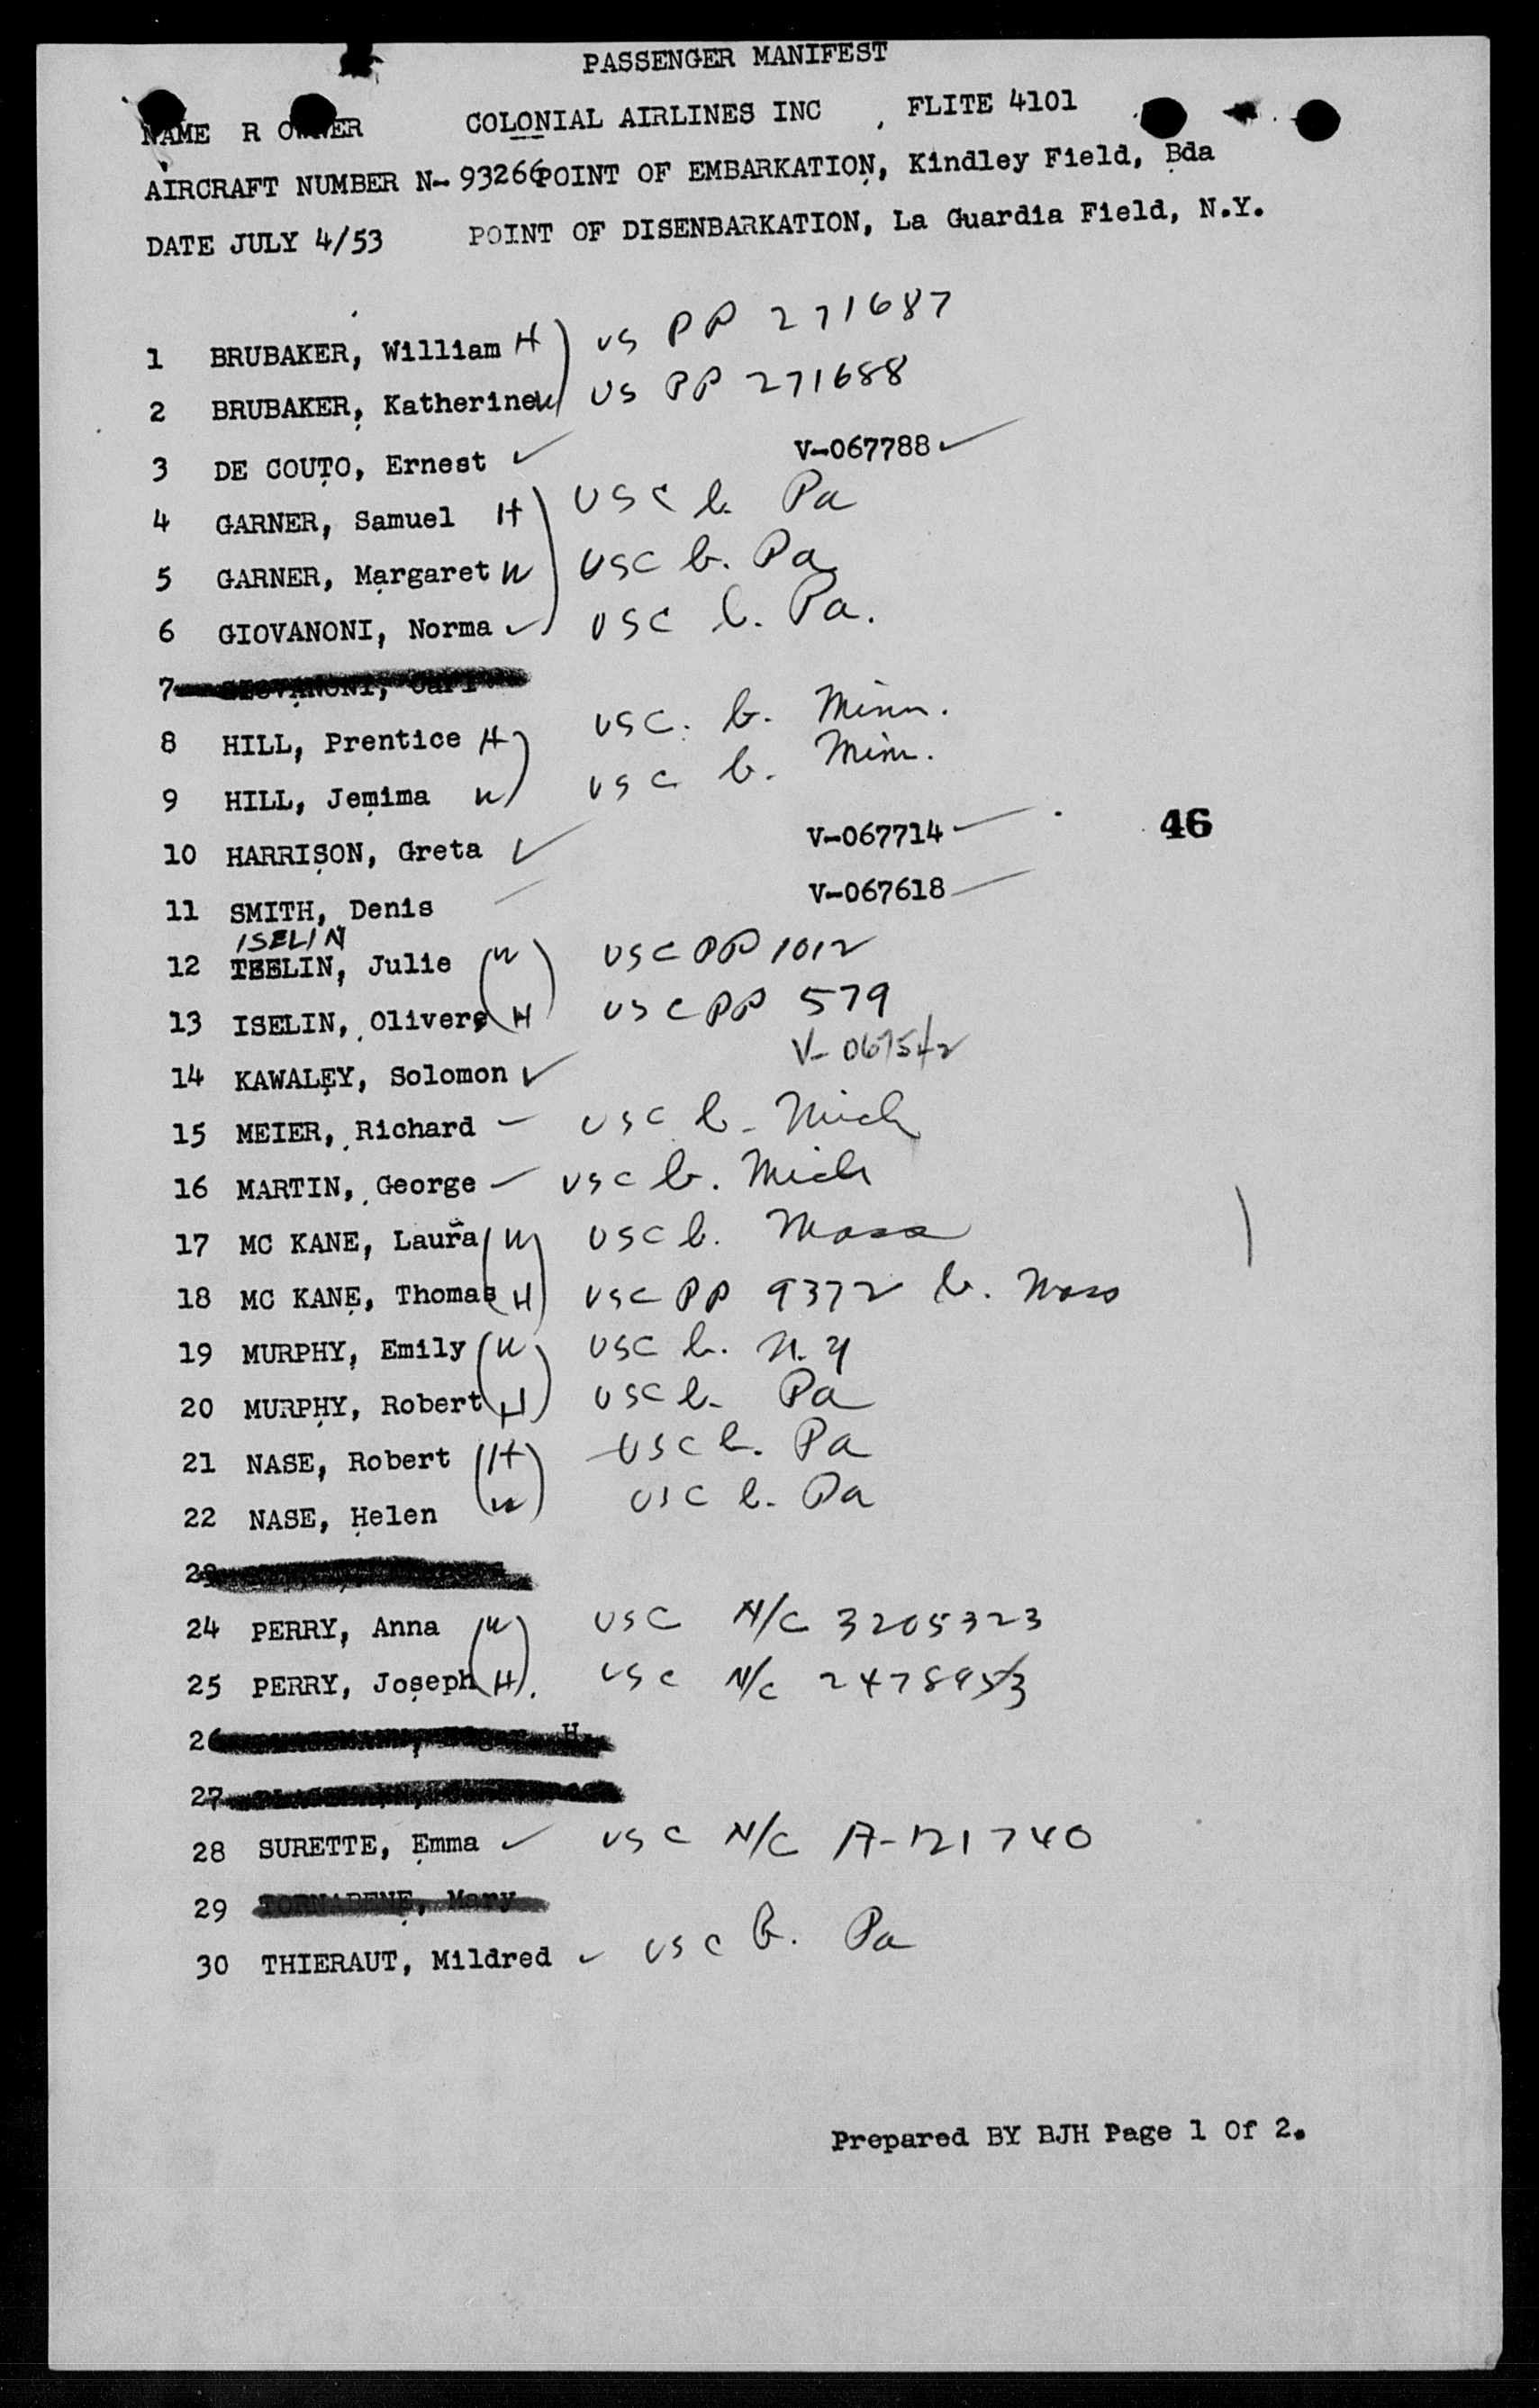 PASSENGER MANIFEST
NAME R OWNER COLONIAL AIRLINES INC , FLITE 4101
AIRCRAFT NUMBER N- 93266 POINT OF EMBARKATION, Kindley Field, Bda
DATE JULY 4/53 POINT OF DISENBARKATION, La Guardia Field, N.Y.
1 BRUBAKER, William H US PP 271687
2 BRUBAKER, Katherine W US PP 271688
3 DE COUTO, Ernest ✓ V-067788 ✓
4 GARNER, Samuel H USC b. Pa
5 GARNER, Margaret W USC b. Pa
6 GIOVANONI, Norma ✓ USC b. Pa.
7 GIOVANONI, Carl
8 HILL, Prentice H USC. b. Minn.
9 HILL, Jemima W USC b. Minn.
10 HARRISON, Greta ✓ V-067714
46
11 SMITH, Denis V-067618
ISELIN
12 TEELIN, Julie (W) USC PP 1012
13 ISELIN, Olivers (H) USC PP 579
14 KAWALEY, Solomon ✓ V-067542
15 MEIER, Richard - USC b. Mich
16 MARTIN, George - USC b. Mich
17 MC KANE, Laura (W) USC b. Mass
18 MC KANE, Thomas (H) USC PP 9372 b. Mass
19 MURPHY, Emily (W) USC b. N.Y
20 MURPHY, Robert (H) USC b. Pa
21 NASE, Robert (H) USC b. Pa
22 NASE, Helen (W) USC b. Pa
23
24 PERRY, Anna (W) USC N/C 3205323
25 PERRY, Joseph (H). USC N/C 2478953
26 H
27
28 SURETTE, Emma ✓ USC N/C A-121740
29 TORNABENE, Mary
30 THIERAUT, Mildred ✓ USC b. Pa
Prepared BY BJH Page 1 Of 2.